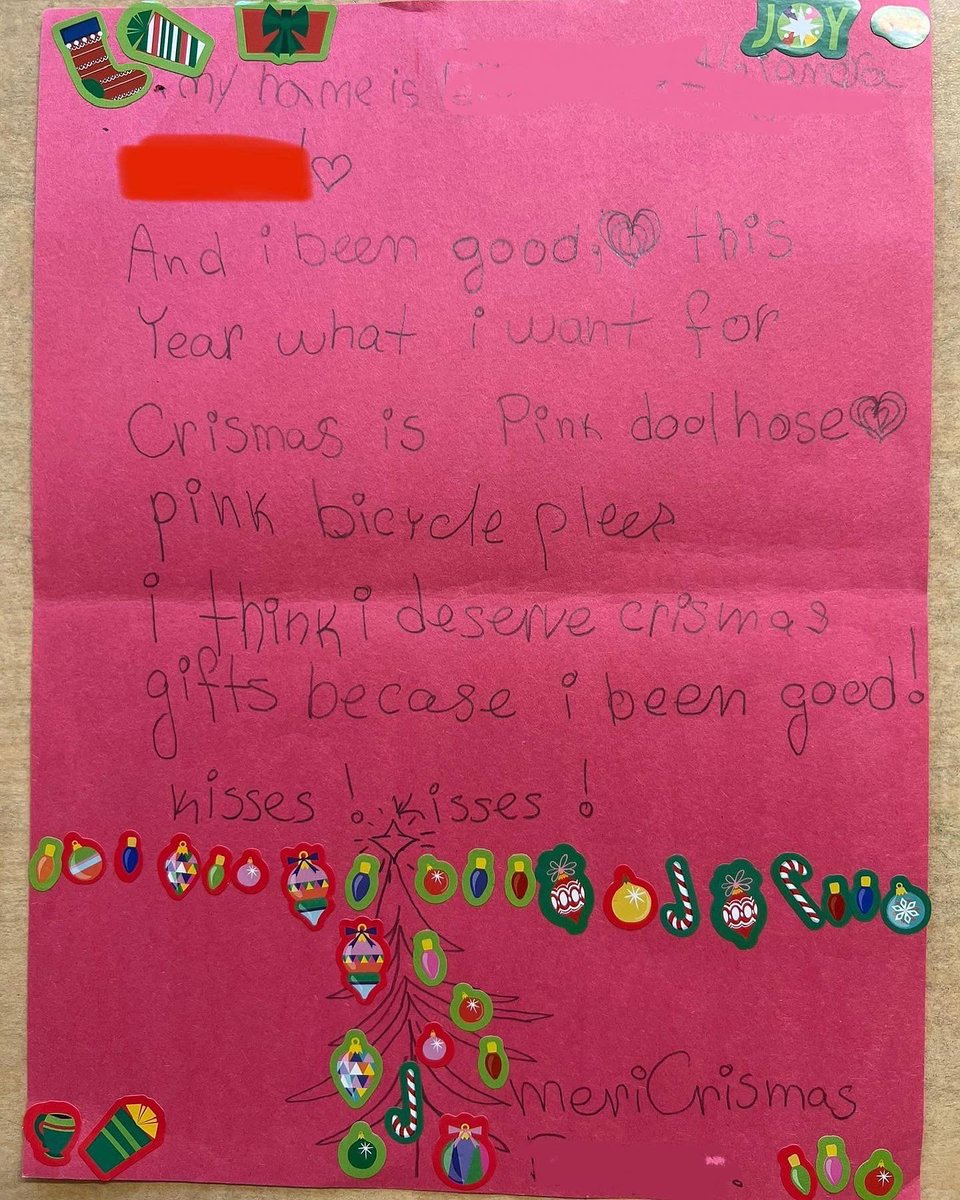 JOY
my name is
And i been good, this
Year what i want for
Crismas is Pink doolhose
pink bicycle plees
i think i deserve crismas
gifts becase i been good!
kisses ! kisses !
meriCrismas